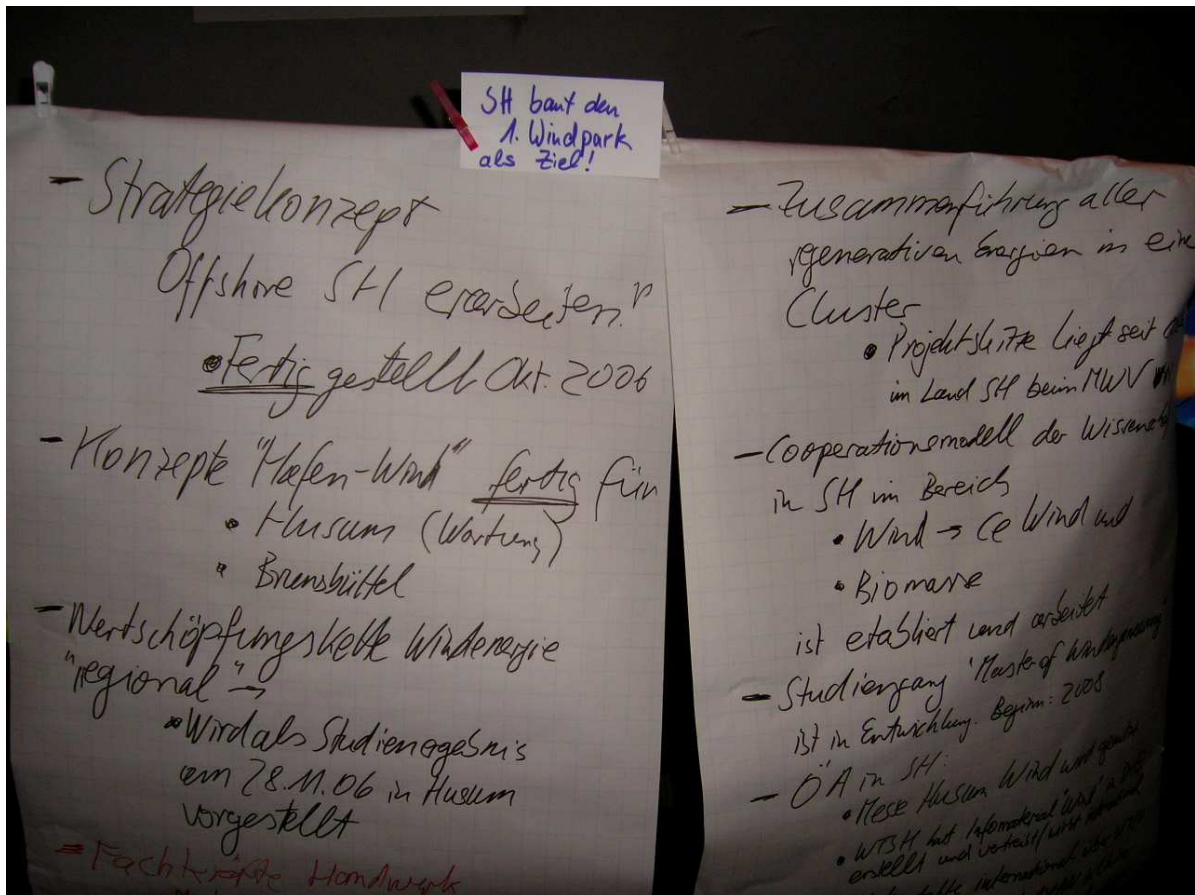 SH baut den
1. Windpark
als Ziel!
- Strategiekonzept
Offshore SH erarbeiten!
• Fertig gestellt Okt. 2006
- Konzepte "Hafen-Wind" fertig für
• Husum (Wartung)
• Brunsbüttel
- Wertschöpfungskette Windenergie
"regional" →
• Wird als Studienergebnis
am 28.11.06 in Husum
vorgestellt
- Fachkräfte Handwerk
- Zusammenführung aller
regenerativen Energien in eine
Cluster
• Projektskizze liegt seit
im Land SH beim MWV
- Cooperationsmodell der Wissensch
in SH im Bereich
• Wind → Ce Wind und
• Biomasse
ist etabliert und arbeitet
- Studiengang "Master of
ist in Entwicklung. Beginn: 2008
- ÖA in SH:
• Messe Husum Wind wird
• WTSH hat Infomaterial "Wind" in
erstellt und verteilt/wirbt
international über